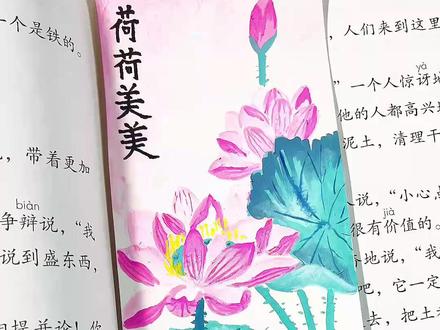 个是铁的。
，带着更加
biàn
争辩说，“我
说到盛东西，
提并论！你
荷荷美美
，人们来到这里
yà
”一个人惊讶地
他的人都高兴
泥土，清理干
人说，“小心
jià
很有价值的。
地说，“我
吧，它一定
去，把土